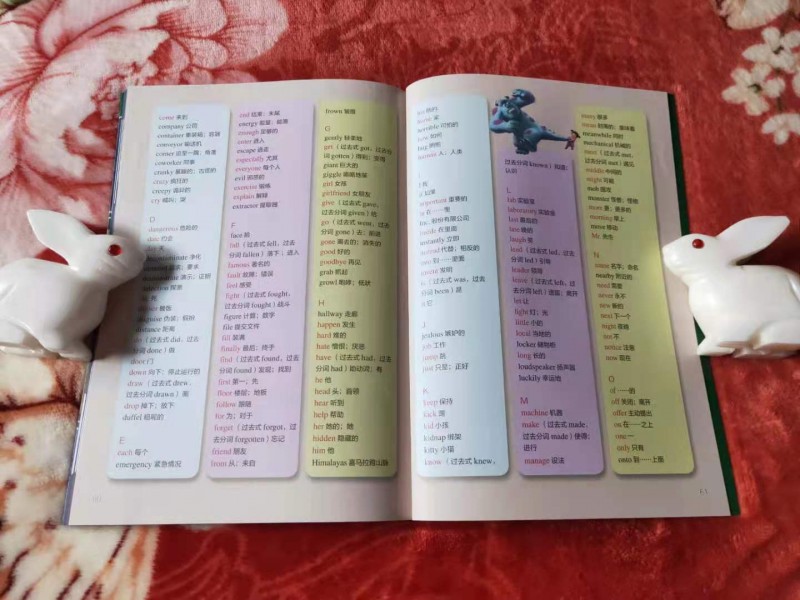 come 来到
company 公司
container 集装箱；容器
conveyor 输送机
corner 角落
coworker 同事
crazy 疯狂的
creepy
cry 喊叫；哭
D
dangerous 危险的
date 约会
净化
要求
演示；证明
警告
disguise 伪装；假扮
distance 距离
do（过去式 did，过去
分词 done）做
door 门
down 向下；停止运行的
draw（过去式 drew，
过去分词 drawn）画
drop 掉下；放下
duffel 粗呢的
E
each 每个
emergency 紧急情况
end 结束；末端
energy 能量；能源
enough 足够的
enter 进入
escape 逃走
especially 尤其
everyone 每个人
evil 邪恶的
exercise 锻炼
explain 解释
extractor 提取器
F
face 脸
fall（过去式 fell，过去
分词 fallen）落下；进入
famous 著名的
fault 故障；错误
feel 感受
fight（过去式 fought，
过去分词 fought）战斗
figure 计算；数字
file 提交文件
fill 装满
finally 最后；终于
find（过去式 found，过去
分词 found）发现；找到
first 第一；先
floor 楼层；地板
follow 跟随
for 为；对于
forget（过去式 forgot，过
去分词 forgotten）忘记
friend 朋友
from 从；来自
frown 皱眉
G
gently 轻柔地
get（过去式 got，过去分
词 gotten）得到；变得
giant 巨大的
giggle 咯咯地笑
girl 女孩
girlfriend 女朋友
give（过去式 gave，
过去分词 given）给
go（过去式 went，过去
分词 gone）去；前进
gone 离去的；消失的
good 好的
goodbye 再见
grab 抓起
growl 咆哮；低吠
H
hallway 走廊
happen 发生
hard 难的
hate 憎恨；厌恶
have（过去式 had，过去
分词 had）助动词；有
he 他
head 头；首领
hear 听到
help 帮助
her 她的；她
hidden 隐藏的
him 他
Himalayas 喜马拉雅山脉
his 他的
home 家
horrible 可怕的
how 如何
hug 拥抱
human 人；人类
I
I 我
if 如果
important 重要的
in 在……里
Inc. 股份有限公司
inside 在里面
instantly 立即
instead 代替；相反的
into 到……里面
invent 发明
is（过去式 was，过去
分词 been）是
it 它
J
jealous 嫉妒的
job 工作
jump 跳
just 只是；正好
K
keep 保持
kick 踢
kid 小孩
kidnap 绑架
kitty 小猫
know（过去式 knew，
过去分词 known）知道；
认识
L
lab 实验室
laboratory 实验室
last 最后的
late 晚的
laugh 笑
lead（过去式 led，过去
分词 led）引导
leader 领导
leave（过去式 left，过去
分词 left）遗留；离开
let 让
light 灯；光
little 小的
local 当地的
locker 储物柜
long 长的
loudspeaker 扬声器
luckily 幸运地
M
machine 机器
make（过去式 made，
过去分词 made）使得；
进行
manage 设法
many 很多
mean
meanwhile 同时
mechanical 机械的
meet（过去式 met，
过去分词 met）遇见
middle 中间的
might 可能
mob 围攻
monster 怪兽；怪物
more 更；更多的
morning 早上
move 移动
Mr. 先生
N
name 名字；命名
nearby 附近的
need 需要
never 永不
new 新的
next 下一个
night 夜晚
not 不
notice 注意
now 现在
O
of ……的
off 关闭；离开
offer 主动提出
on 在……之上
one 一
only 只有
onto 到……上面
61